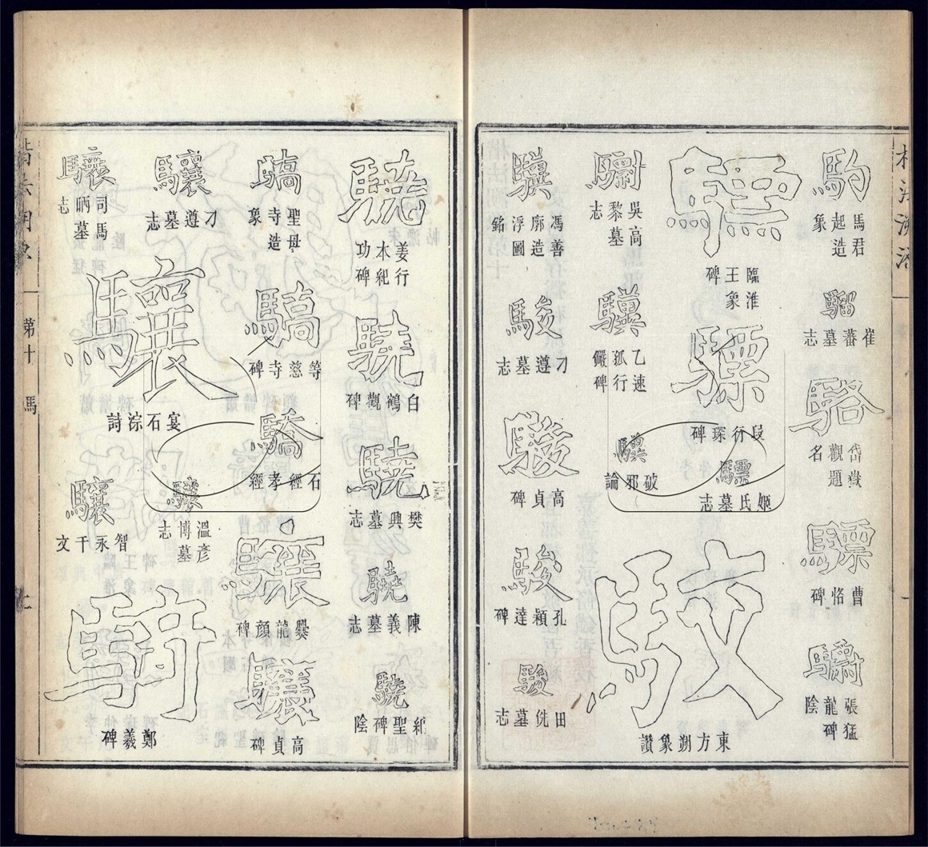 駒
馬君
起造
象
騮
崔蕃墓志
駱
岱嶽
觀題
名
驃
曹恪碑
張猛
龍碑
陰
驃
臨淮
王象
碑
驃
段行琛碑
驃
姬氏墓志
駮
東方朔象讚
吳高
黎墓
志
驥
乙速
孤行
儼碑
驥
破邪論
驥
馮善
廓造
浮圖
銘
駿
刁遵墓志
駿
高貞碑
駿
孔穎達碑
駿
田侁墓志
驍
姜行
本紀
功碑
驍
白鶴觀碑
驍
樊興墓志
驍
陳義墓志
驍
紀聖碑陰
驕
聖母
寺造
象
驕
等慈寺碑
驕
石經孝經
驤
爨龍顏碑
驤
高貞碑
驤
刁遵墓志
驤
宴石淙詩
驤
溫彥
博墓
志
騎
鄭羲碑
驤
司馬
昞墓
志
驤
智永千文
第十 馬